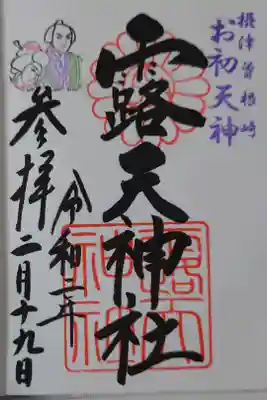 摂津曽根崎
お初天神
露天神社
令和二年
参拝二月十九日